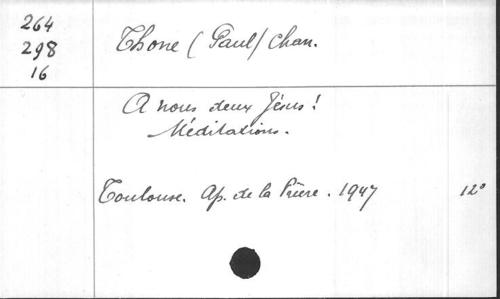 264
298
16
Thone (Paul) chan.
A nous deux Jésus !
Méditations.
Toulouse. Ap. de la Prière. 1947 12°